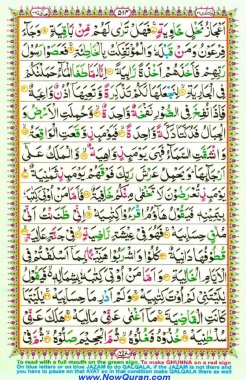 اَعْجَازُ نَخْلٍ خَاوِيَةٍ فَهَلْ تَرٰى لَهُمْ مِّنْۢ بَاقِيَةٍ وَجَآءَ
فِرْعَوْنُ وَمَنْ قَبْلَهٗ وَالْمُؤْتَفِكٰتُ بِالْخَاطِئَةِ فَعَصَوْا رَسُوْلَ
رَبِّهِمْ فَاَخَذَهُمْ اَخْذَةً رَّابِيَةً اِنَّا لَمَّا طَغَا الْمَآءُ حَمَلْنٰكُمْ
فِى الْجَارِيَةِ لِنَجْعَلَهَا لَكُمْ تَذْكِرَةً وَّتَعِيَهَآ اُذُنٌ وَّاعِيَةٌ
فَاِذَا نُفِخَ فِى الصُّوْرِ نَفْخَةٌ وَّاحِدَةٌ وَّحُمِلَتِ الْاَرْضُ وَ
الْجِبَالُ فَدُكَّتَا دَكَّةً وَّاحِدَةً فَيَوْمَئِذٍ وَّقَعَتِ الْوَاقِعَةُ
وَانْشَقَّتِ السَّمَآءُ فَهِىَ يَوْمَئِذٍ وَّاهِيَةٌ وَّالْمَلَكُ عَلٰٓى
اَرْجَآئِهَا وَيَحْمِلُ عَرْشَ رَبِّكَ فَوْقَهُمْ يَوْمَئِذٍ ثَمٰنِيَةٌ
يَوْمَئِذٍ تُعْرَضُوْنَ لَا تَخْفٰى مِنْكُمْ خَافِيَةٌ فَاَمَّا مَنْ اُوْتِىَ كِتٰبَهٗ
بِيَمِيْنِهٖ فَيَقُوْلُ هَآؤُمُ اقْرَءُوْا كِتٰبِيَهْ اِنِّىْ ظَنَنْتُ اَنِّىْ
مُلٰقٍ حِسَابِيَهْ فَهُوَ فِىْ عِيْشَةٍ رَّاضِيَةٍ فِىْ جَنَّةٍ عَالِيَةٍ
قُطُوْفُهَا دَانِيَةٌ كُلُوْا وَاشْرَبُوْا هَنِيْٓئًۢا بِمَآ اَسْلَفْتُمْ فِى
الْاَيَّامِ الْخَالِيَةِ وَاَمَّا مَنْ اُوْتِىَ كِتٰبَهٗ بِشِمَالِهٖ فَيَقُوْلُ
يٰلَيْتَنِىْ لَمْ اُوْتَ كِتٰبِيَهْ وَلَمْ اَدْرِ مَا حِسَابِيَهْ يٰلَيْتَهَا
كَانَتِ الْقَاضِيَةَ مَآ اَغْنٰى عَنِّىْ مَالِيَهْ هَلَكَ عَنِّىْ
سُلْطٰنِيَهْ خُذُوْهُ فَغُلُّوْهُ ثُمَّ الْجَحِيْمَ صَلُّوْهُ
To read with a full mouth on the green sign, To make GHUNNA on a red sign
On blue letters or on blue JAZAM to do QALQALA, if the JAZAM is not there and
you have to pause on that AYAT so in that condition make QALQALA there as well
www.NowQuran.com